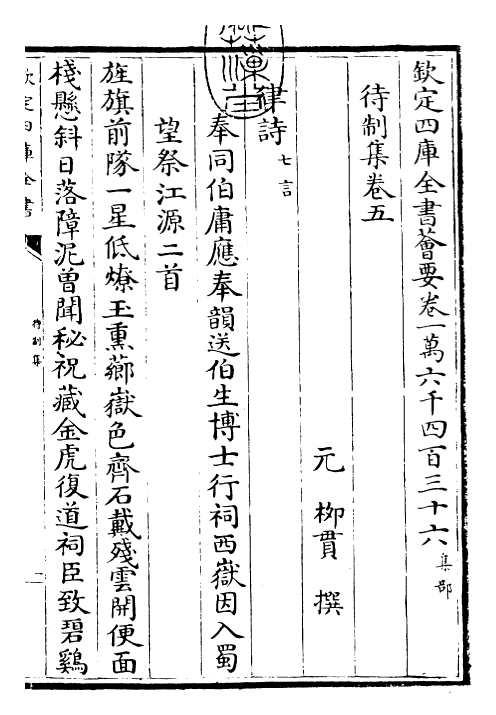 欽定四庫全書薈要卷一萬六千四百三十六集部
待制集卷五
元 柳貫 撰
律詩七言
奉同伯庸應奉韻送伯生博士行祠西嶽因入蜀
望祭江源二首
旌旗前隊一星低燎玉熏薌嶽色齊石戴殘雲開便面
棧懸斜日落障泥曾聞秘祝藏金虎復道祠臣致碧雞
欽定四庫全書
待制集
一